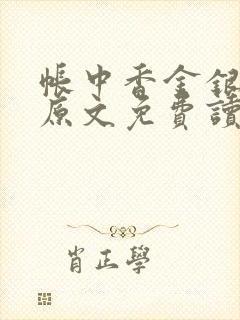 帳中香金銀
原文免費讀
肖正學